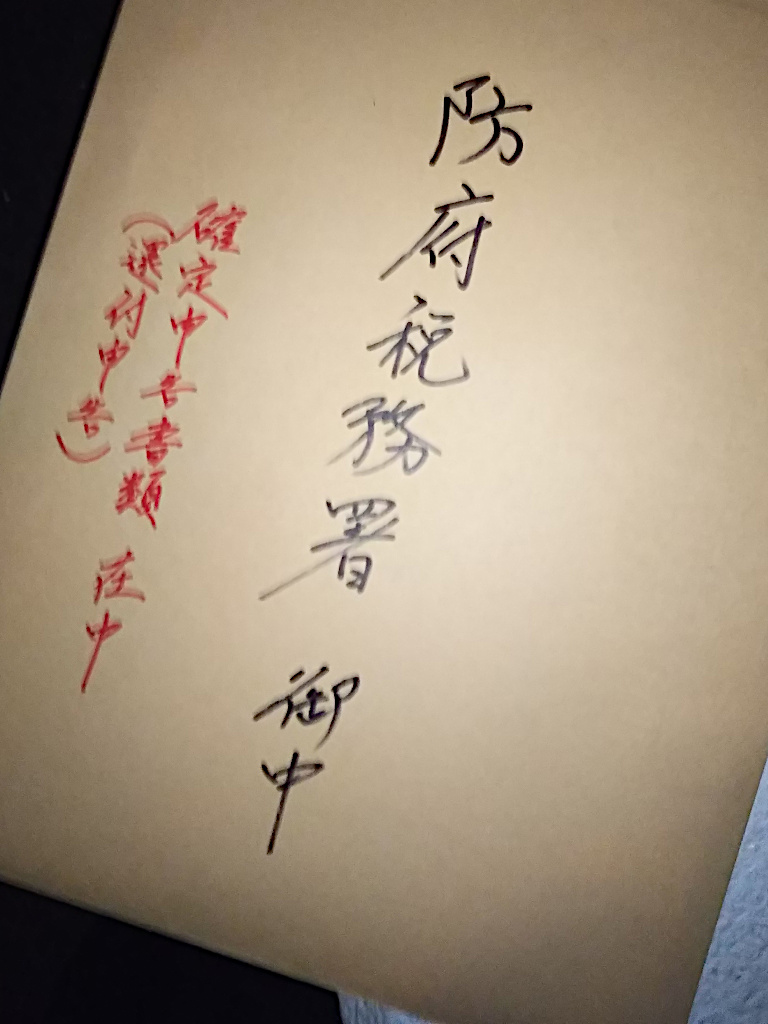 防府税務署 御中
確定申告書類 在中
(還付申告)